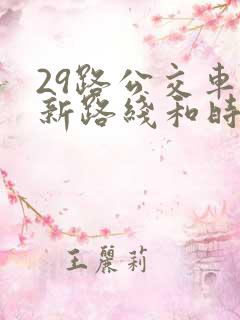 29路公交車
新路綫和時
王麗莉